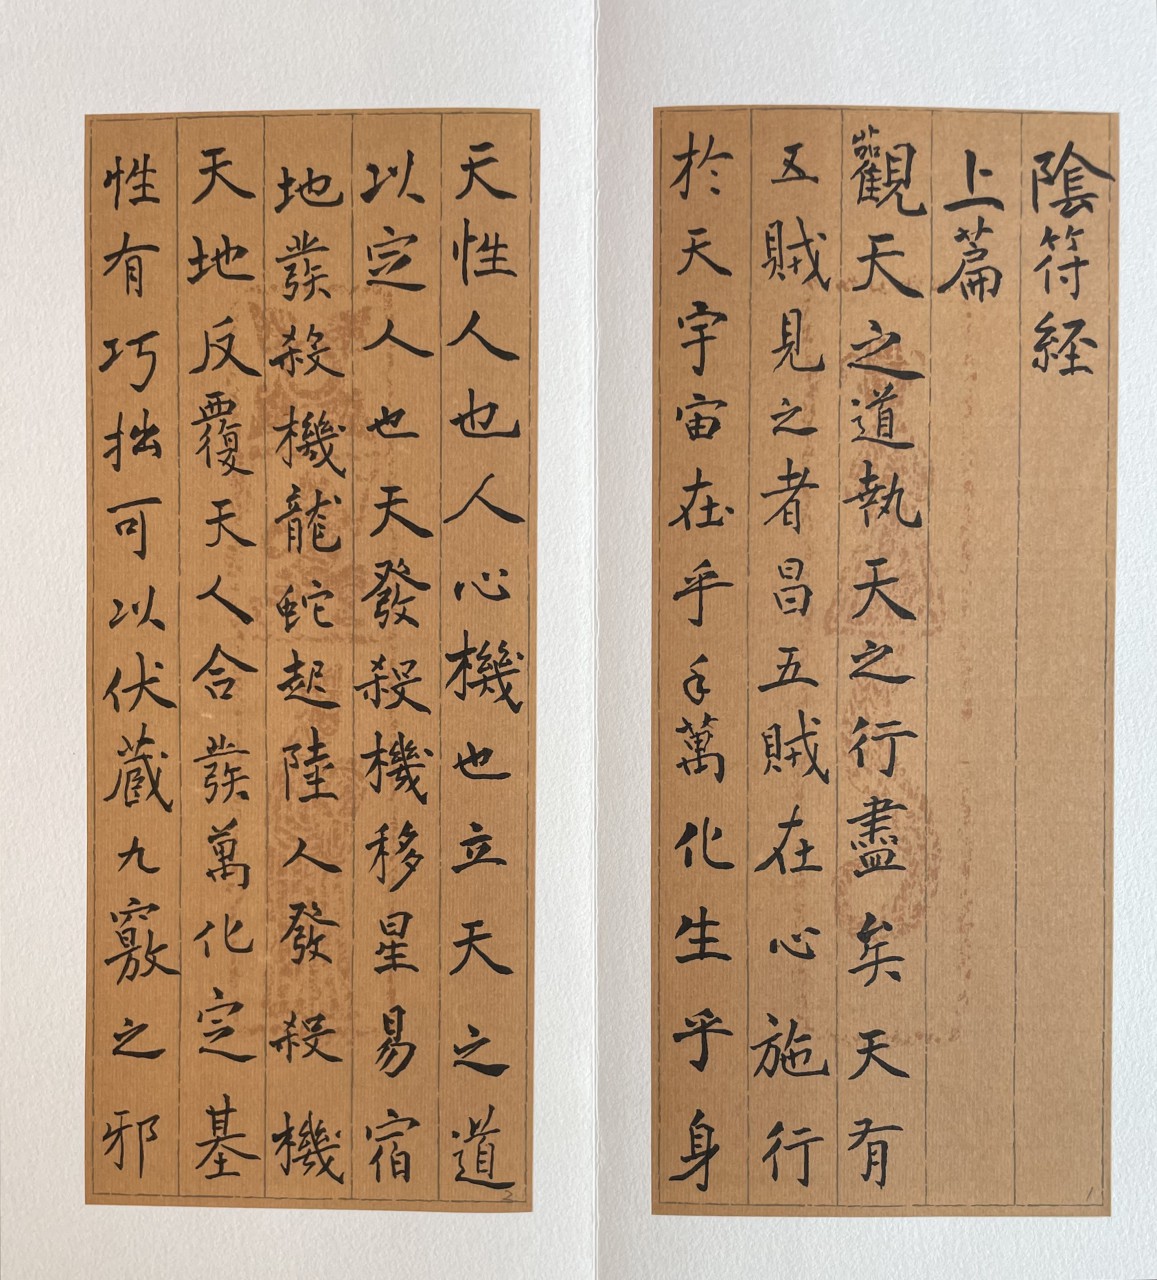 陰符経
上篇
觀天之道執天之行盡矣天有
五賊見之者昌五賊在心施行
於天宇宙在乎手萬化生乎身
1
天性人也人心機也立天之道
以定人也天發殺機移星易宿
地發殺機龍蛇起陸人發殺機
天地反覆天人合發萬化定基
性有巧拙可以伏蔵九竅之邪
2